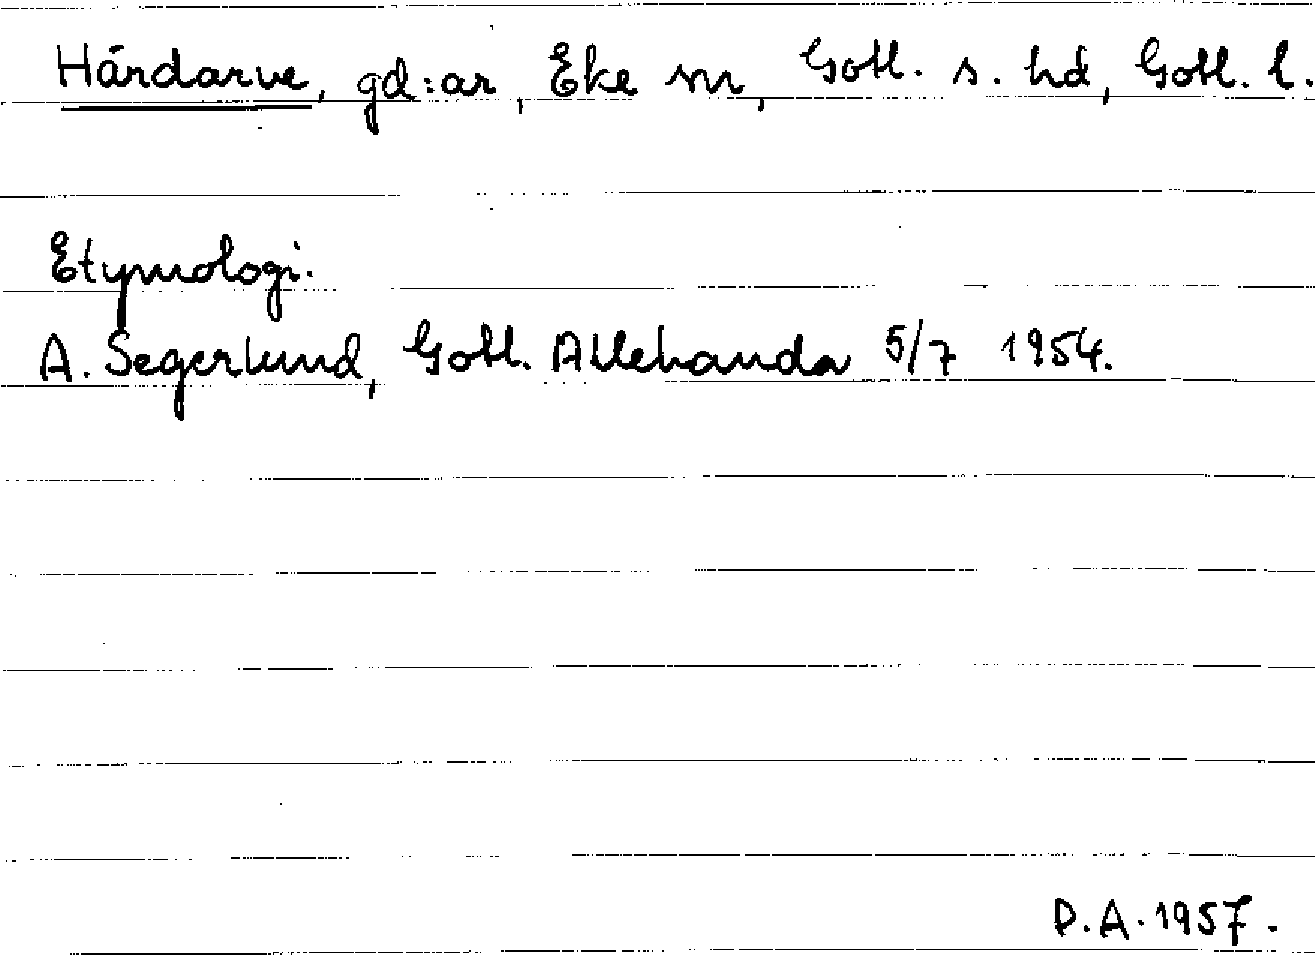 Hårdarve, gd:ar, Eke sn, Gotl. s. hd, Gotl. l.
Etymologi.
A. Segerlund, Gotl. Allehanda 5/7 1954.
D.A. 1957.